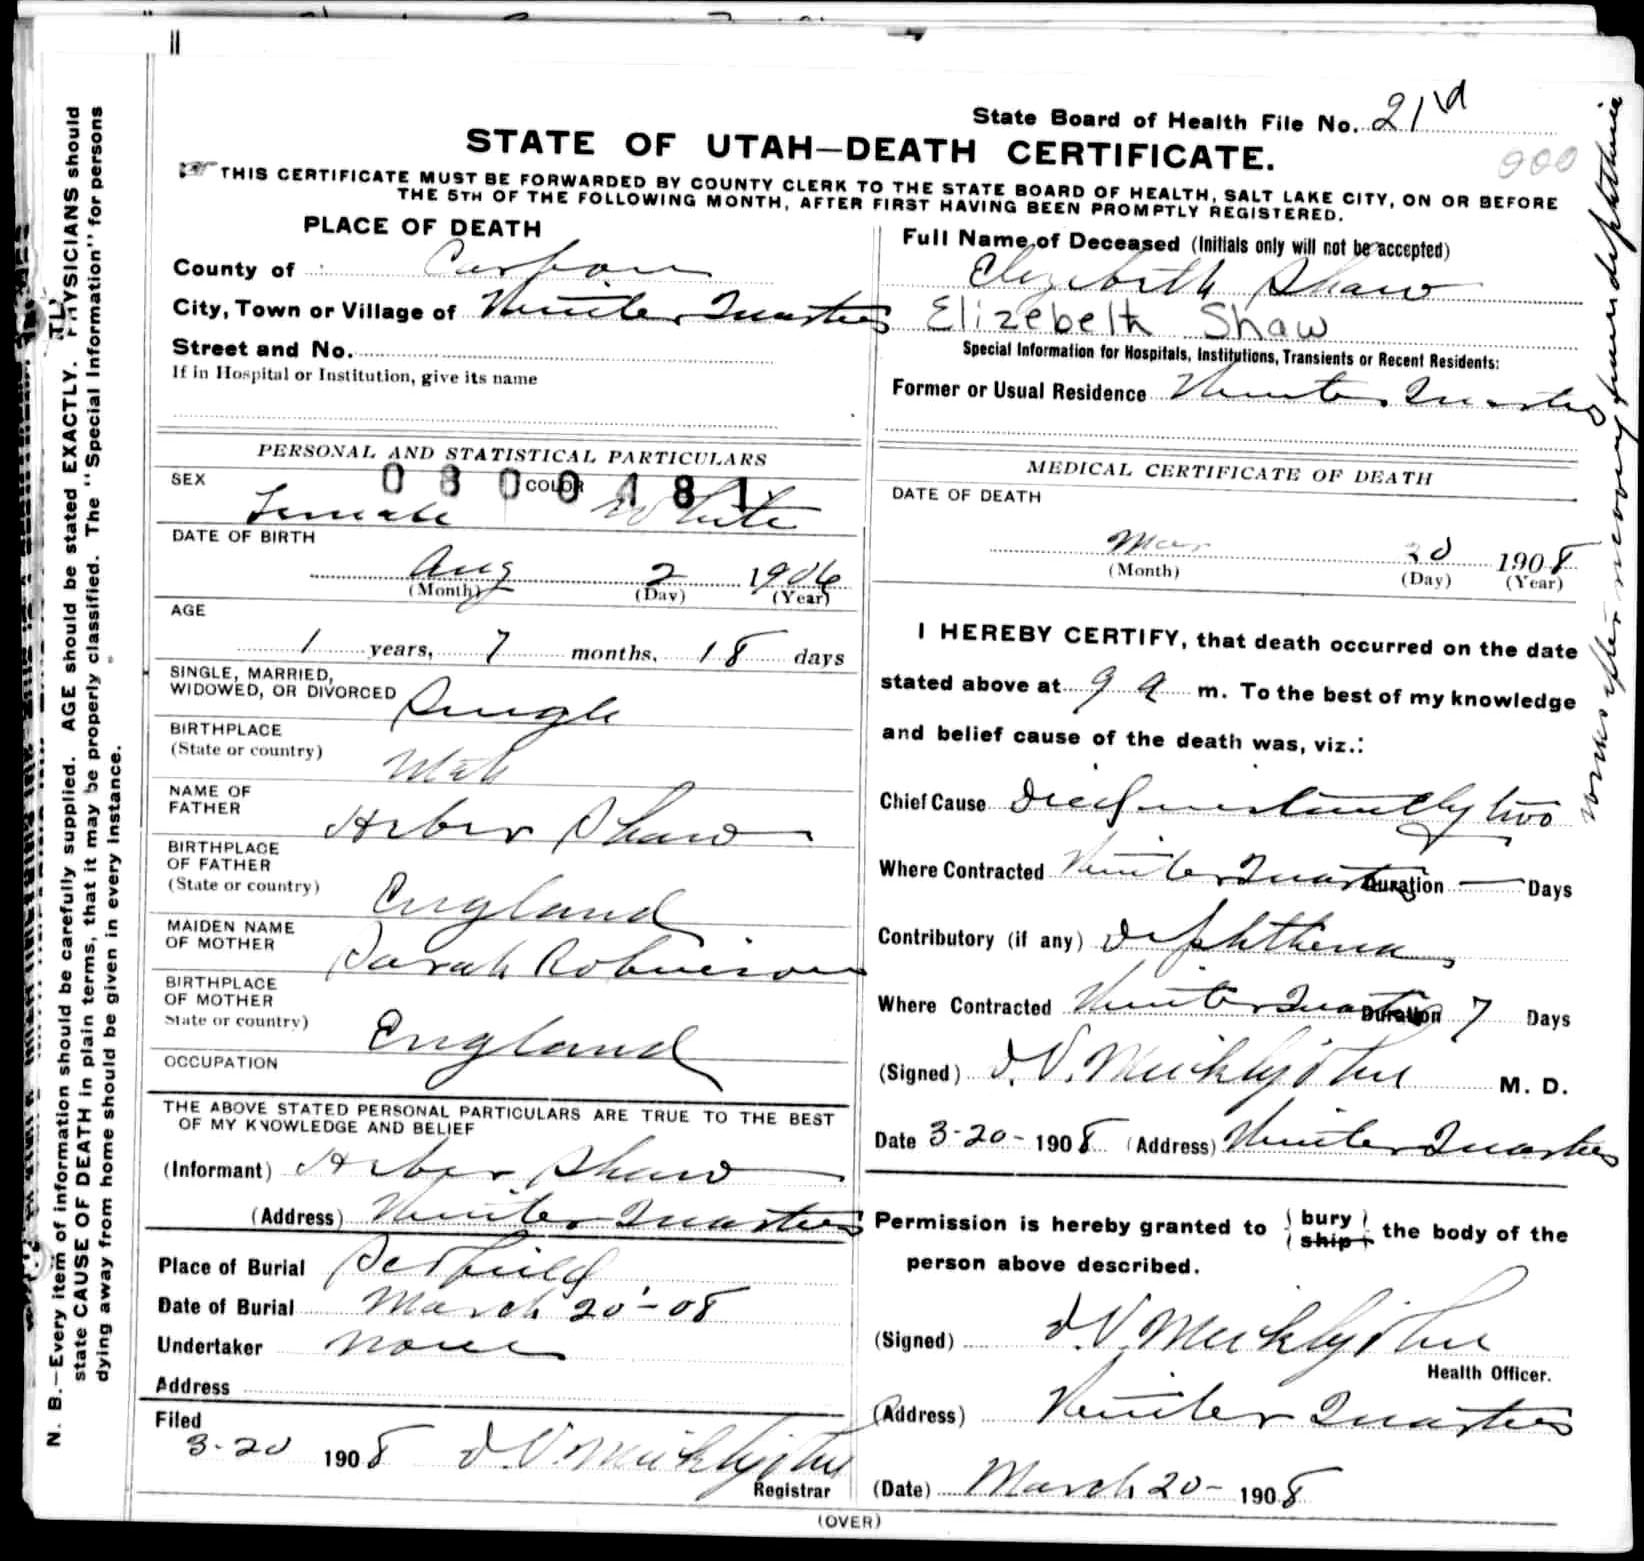 State Board of Health File No. 21d
STATE OF UTAH—DEATH CERTIFICATE.
000
☞ THIS CERTIFICATE MUST BE FORWARDED BY COUNTY CLERK TO THE STATE BOARD OF HEALTH, SALT LAKE CITY, ON OR BEFORE
THE 5TH OF THE FOLLOWING MONTH, AFTER FIRST HAVING BEEN PROMPTLY REGISTERED.
PLACE OF DEATH
County of Carbon
City, Town or Village of Winter Quarters
Street and No.
If in Hospital or Institution, give its name
Full Name of Deceased (Initials only will not be accepted)
Elizebeth Shaw
Elizebeth Shaw
Special Information for Hospitals, Institutions, Transients or Recent Residents:
Former or Usual Residence Winter Quarters
PERSONAL AND STATISTICAL PARTICULARS
0300481
SEX Female COLOR White
DATE OF BIRTH
Aug 2 1906
(Month) (Day) (Year)
AGE
1 years, 7 months, 18 days
SINGLE, MARRIED,
WIDOWED, OR DIVORCED Single
BIRTHPLACE
(State or country) Utah
NAME OF
FATHER Heber Shaw
BIRTHPLACE
OF FATHER
(State or country) England
MAIDEN NAME
OF MOTHER Sarah Robinson
BIRTHPLACE
OF MOTHER
State or country) England
OCCUPATION
THE ABOVE STATED PERSONAL PARTICULARS ARE TRUE TO THE BEST
OF MY KNOWLEDGE AND BELIEF
(Informant) Heber Shaw
(Address) Winter Quarters
Place of Burial Scofield
Date of Burial March 20-08
Undertaker None
Address
Filed
3-20 1908 J.V. Mucklejohn
Registrar
MEDICAL CERTIFICATE OF DEATH
DATE OF DEATH
Mar 20 1908
(Month) (Day) (Year)
I HEREBY CERTIFY, that death occurred on the date
stated above at 9 a m. To the best of my knowledge
and belief cause of the death was, viz.:
Chief Cause Died instantly two
weeks after recovery from diphtheria
Where Contracted Winter Quarters Duration — Days
Contributory (if any) Diphtheria
Where Contracted Winter Quarters Duration 7 Days
(Signed) J.V. Mucklejohn M. D.
Date 3-20- 1908 (Address) Winter Quarters
Permission is hereby granted to (bury) (ship) the body of the
person above described.
(Signed) J.V. Mucklejohn
Health Officer.
(Address) Winter Quarters
(Date) March 20- 1908
(OVER)
N. B.—Every item of information should be carefully supplied. AGE should be stated EXACTLY. PHYSICIANS should
state CAUSE OF DEATH in plain terms, that it may be properly classified. The "Special Information" for persons
dying away from home should be given in every instance.